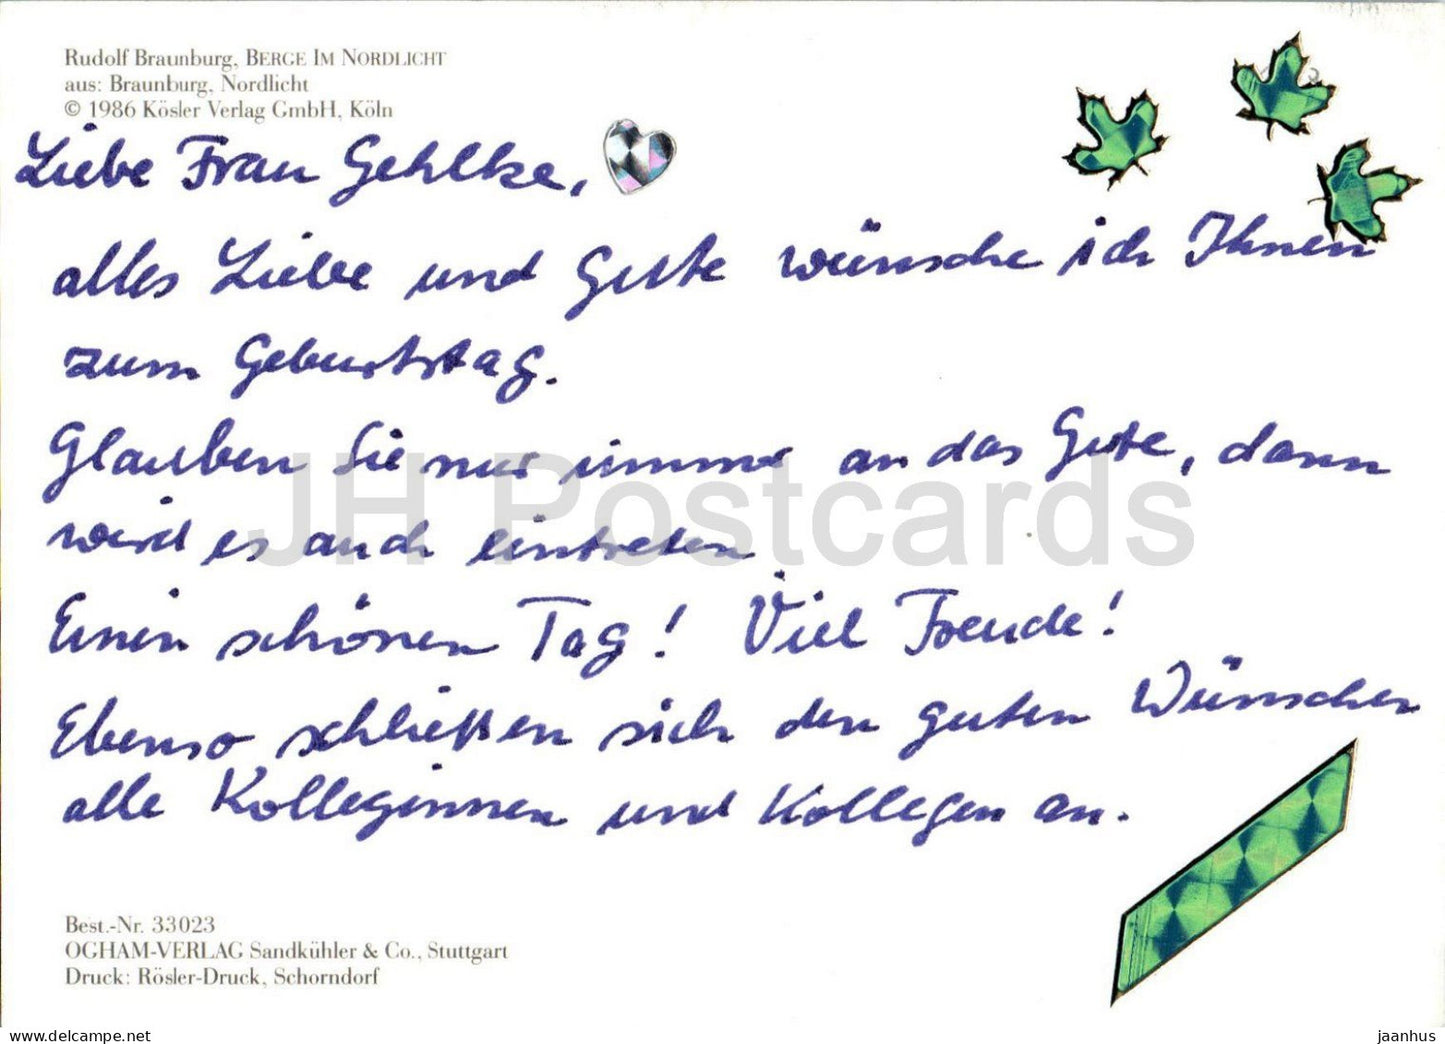 Rudolf Braunburg, BERGE IM NORDLICHT
aus: Braunburg, Nordlicht
© 1986 Kösler Verlag GmbH, Köln
Liebe Frau Gehlke,
alles Liebe und Gute wünsche ich Ihnen
zum Geburtstag.
Glauben Sie nur immer an das Gute, dann
wird es auch eintreten.
Einen schönen Tag! Viel Freude!
Ebenso schließen sich den guten Wünschen
alle Kolleginnen und Kollegen an.
JH Postcards
Best.-Nr. 33023
OGHAM-VERLAG Sandkühler & Co., Stuttgart
Druck: Rösler-Druck, Schorndorf
www.delcampe.net
jaanhus